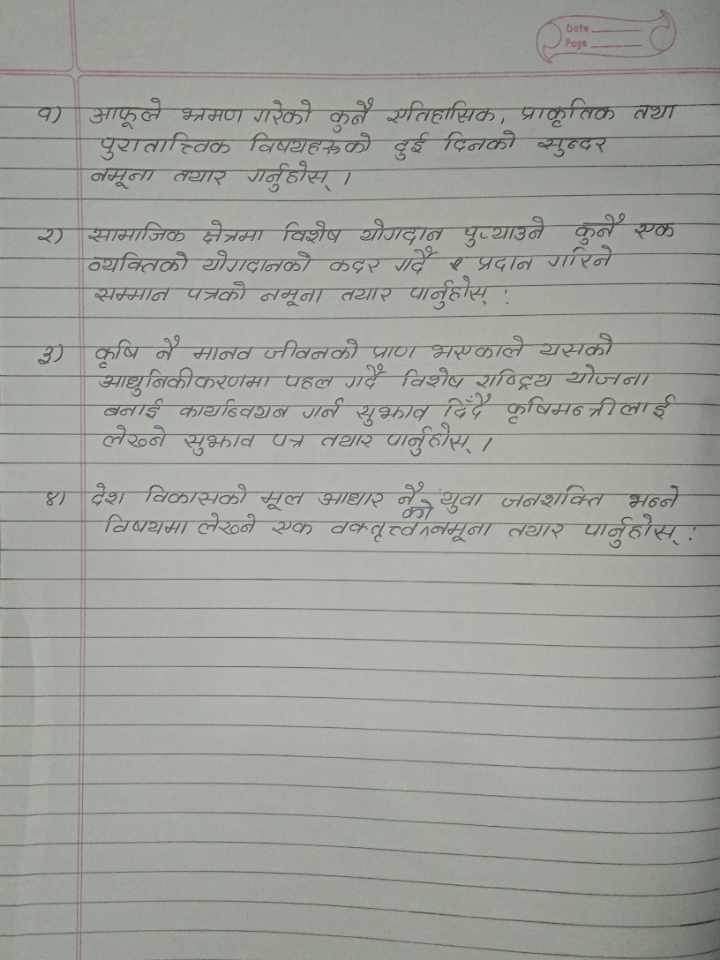 Date
Page
१) आफूले भ्रमण गरेको कुनै एतिहासिक, प्राकृतिक तथा
पुरातात्त्विक विषयहरूको दुई दिनको सुन्दर
नमूना तयार गर्नुहोस् ।
२) सामाजिक क्षेत्रमा विशेष योगदान पुऱ्याउने कुनै एक
व्यक्तिको योगदानको कदर गर्दै प्रदान गरिने
सम्मान पत्रको नमूना तयार पार्नुहोस् :
३) कृषि नै मानव जीवनको प्राण भएकाले यसको
आधुनिकीकरणमा पहल गर्दै विशेष राष्ट्रिय योजना
बनाई कार्यान्वयन गर्न सुझाव दिँदै कृषिमन्त्रीलाई
लेख्ने सुझाव पत्र तयार पार्नुहोस् ।
४) देश विकासको मूल आधार नै युवा जनशक्ति भन्ने
विषयमा लेख्ने एक वक्तृत्वको नमूना तयार पार्नुहोस् :